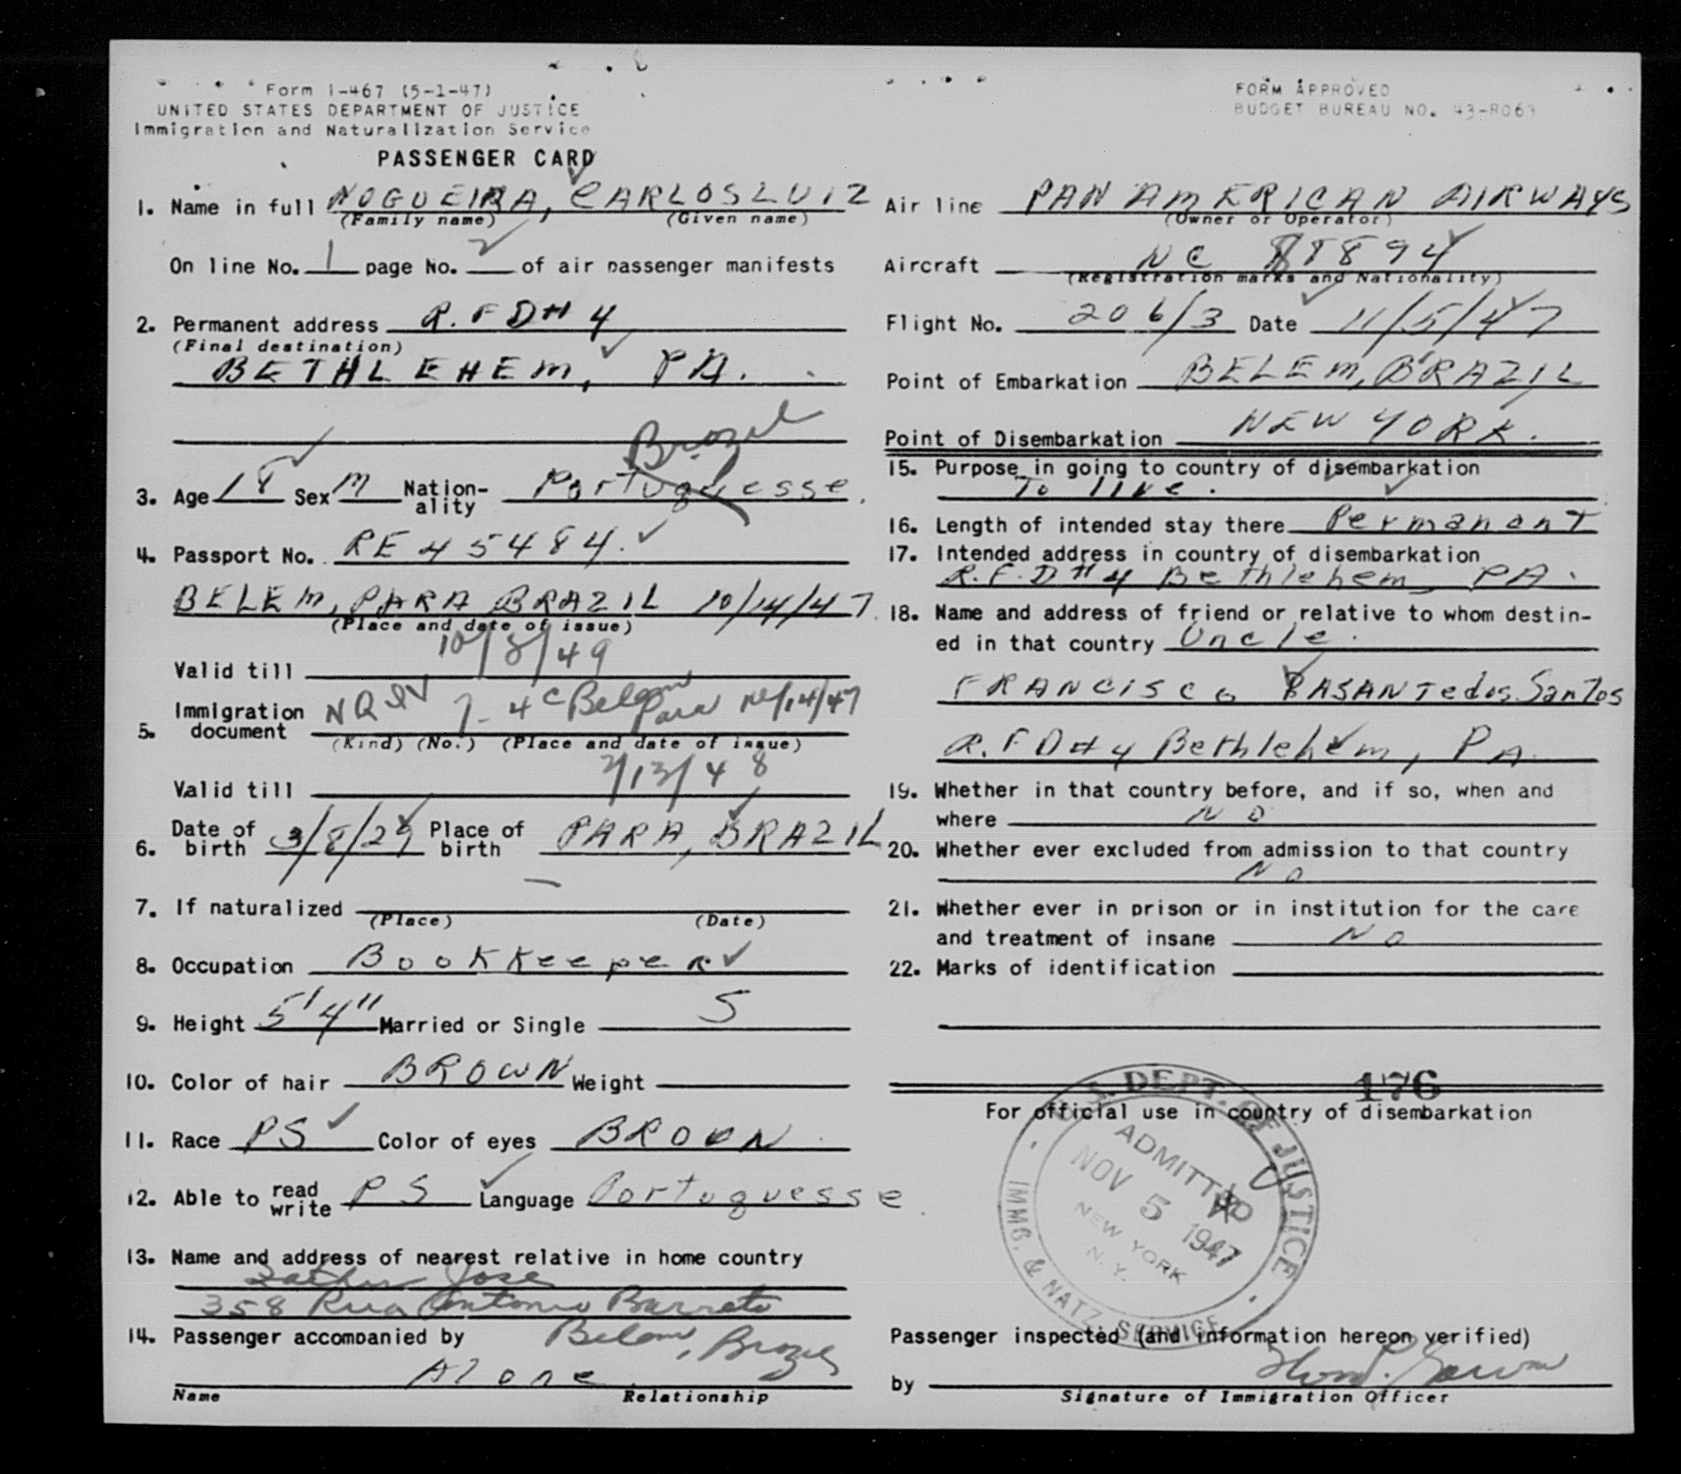 Form I-467 (5-1-47)
UNITED STATES DEPARTMENT OF JUSTICE
Immigration and Naturalization Service
PASSENGER CARD
1. Name in full NOGUEIRA, CARLOS LUIZ
(Family name) (Given name)
On line No. 1 page No. 2 of air passenger manifests
2. Permanent address R.F.D#4
(Final destination)
BETHLEHEM, PA.
Brazil
3. Age 18 Sex M Nation-ality Portuguesse.
4. Passport No. RE 45484.
BELEM, PARA BRAZIL 10/14/47
(Place and date of issue)
Valid till 10/8/49
5. Immigration document NQIV 7-4c Belem Para 10/14/47
(Kind) (No.) (Place and date of issue)
Valid till 2/13/48
6. Date of birth 3/8/29 Place of birth PARA, BRAZIL
7. If naturalized —
(Place) (Date)
8. Occupation BookKeeper
9. Height 5'4" Married or Single S
10. Color of hair BROWN Weight
11. Race PS Color of eyes BROWN
12. Able to read write PS Language Portuguesse
13. Name and address of nearest relative in home country
Father Jose
358 Rua Antonio Barreto
14. Passenger accompanied by Belem, Brazil
Alone
Name Relationship
FORM APPROVED
BUDGET BUREAU NO. 43-R063
Air line PAN AMERICAN AIRWAYS
(Owner or Operator)
Aircraft NC 88894
(Registration marks and Nationality)
Flight No. 206/3 Date 11/5/47
Point of Embarkation BELEM, BRAZIL
Point of Disembarkation NEW YORK.
15. Purpose in going to country of disembarkation
To live.
16. Length of intended stay there Permanant
17. Intended address in country of disembarkation
R.F.D#4 Bethlehem, PA.
18. Name and address of friend or relative to whom destin-
ed in that country Uncle.
FRANCISCO BASANTedos Santos
R.F.D#4 Bethlehem, PA.
19. Whether in that country before, and if so, when and
where NO
20. Whether ever excluded from admission to that country
NO
21. Whether ever in prison or in institution for the care
and treatment of insane NO
22. Marks of identification
176
For official use in country of disembarkation
U.S. DEPT. OF JUSTICE
ADMITTED
NOV 5 1947
NEW YORK
N.Y.
IMMG. & NATZ. SERVICE
Passenger inspected (and information hereon verified)
by
Signature of Immigration Officer